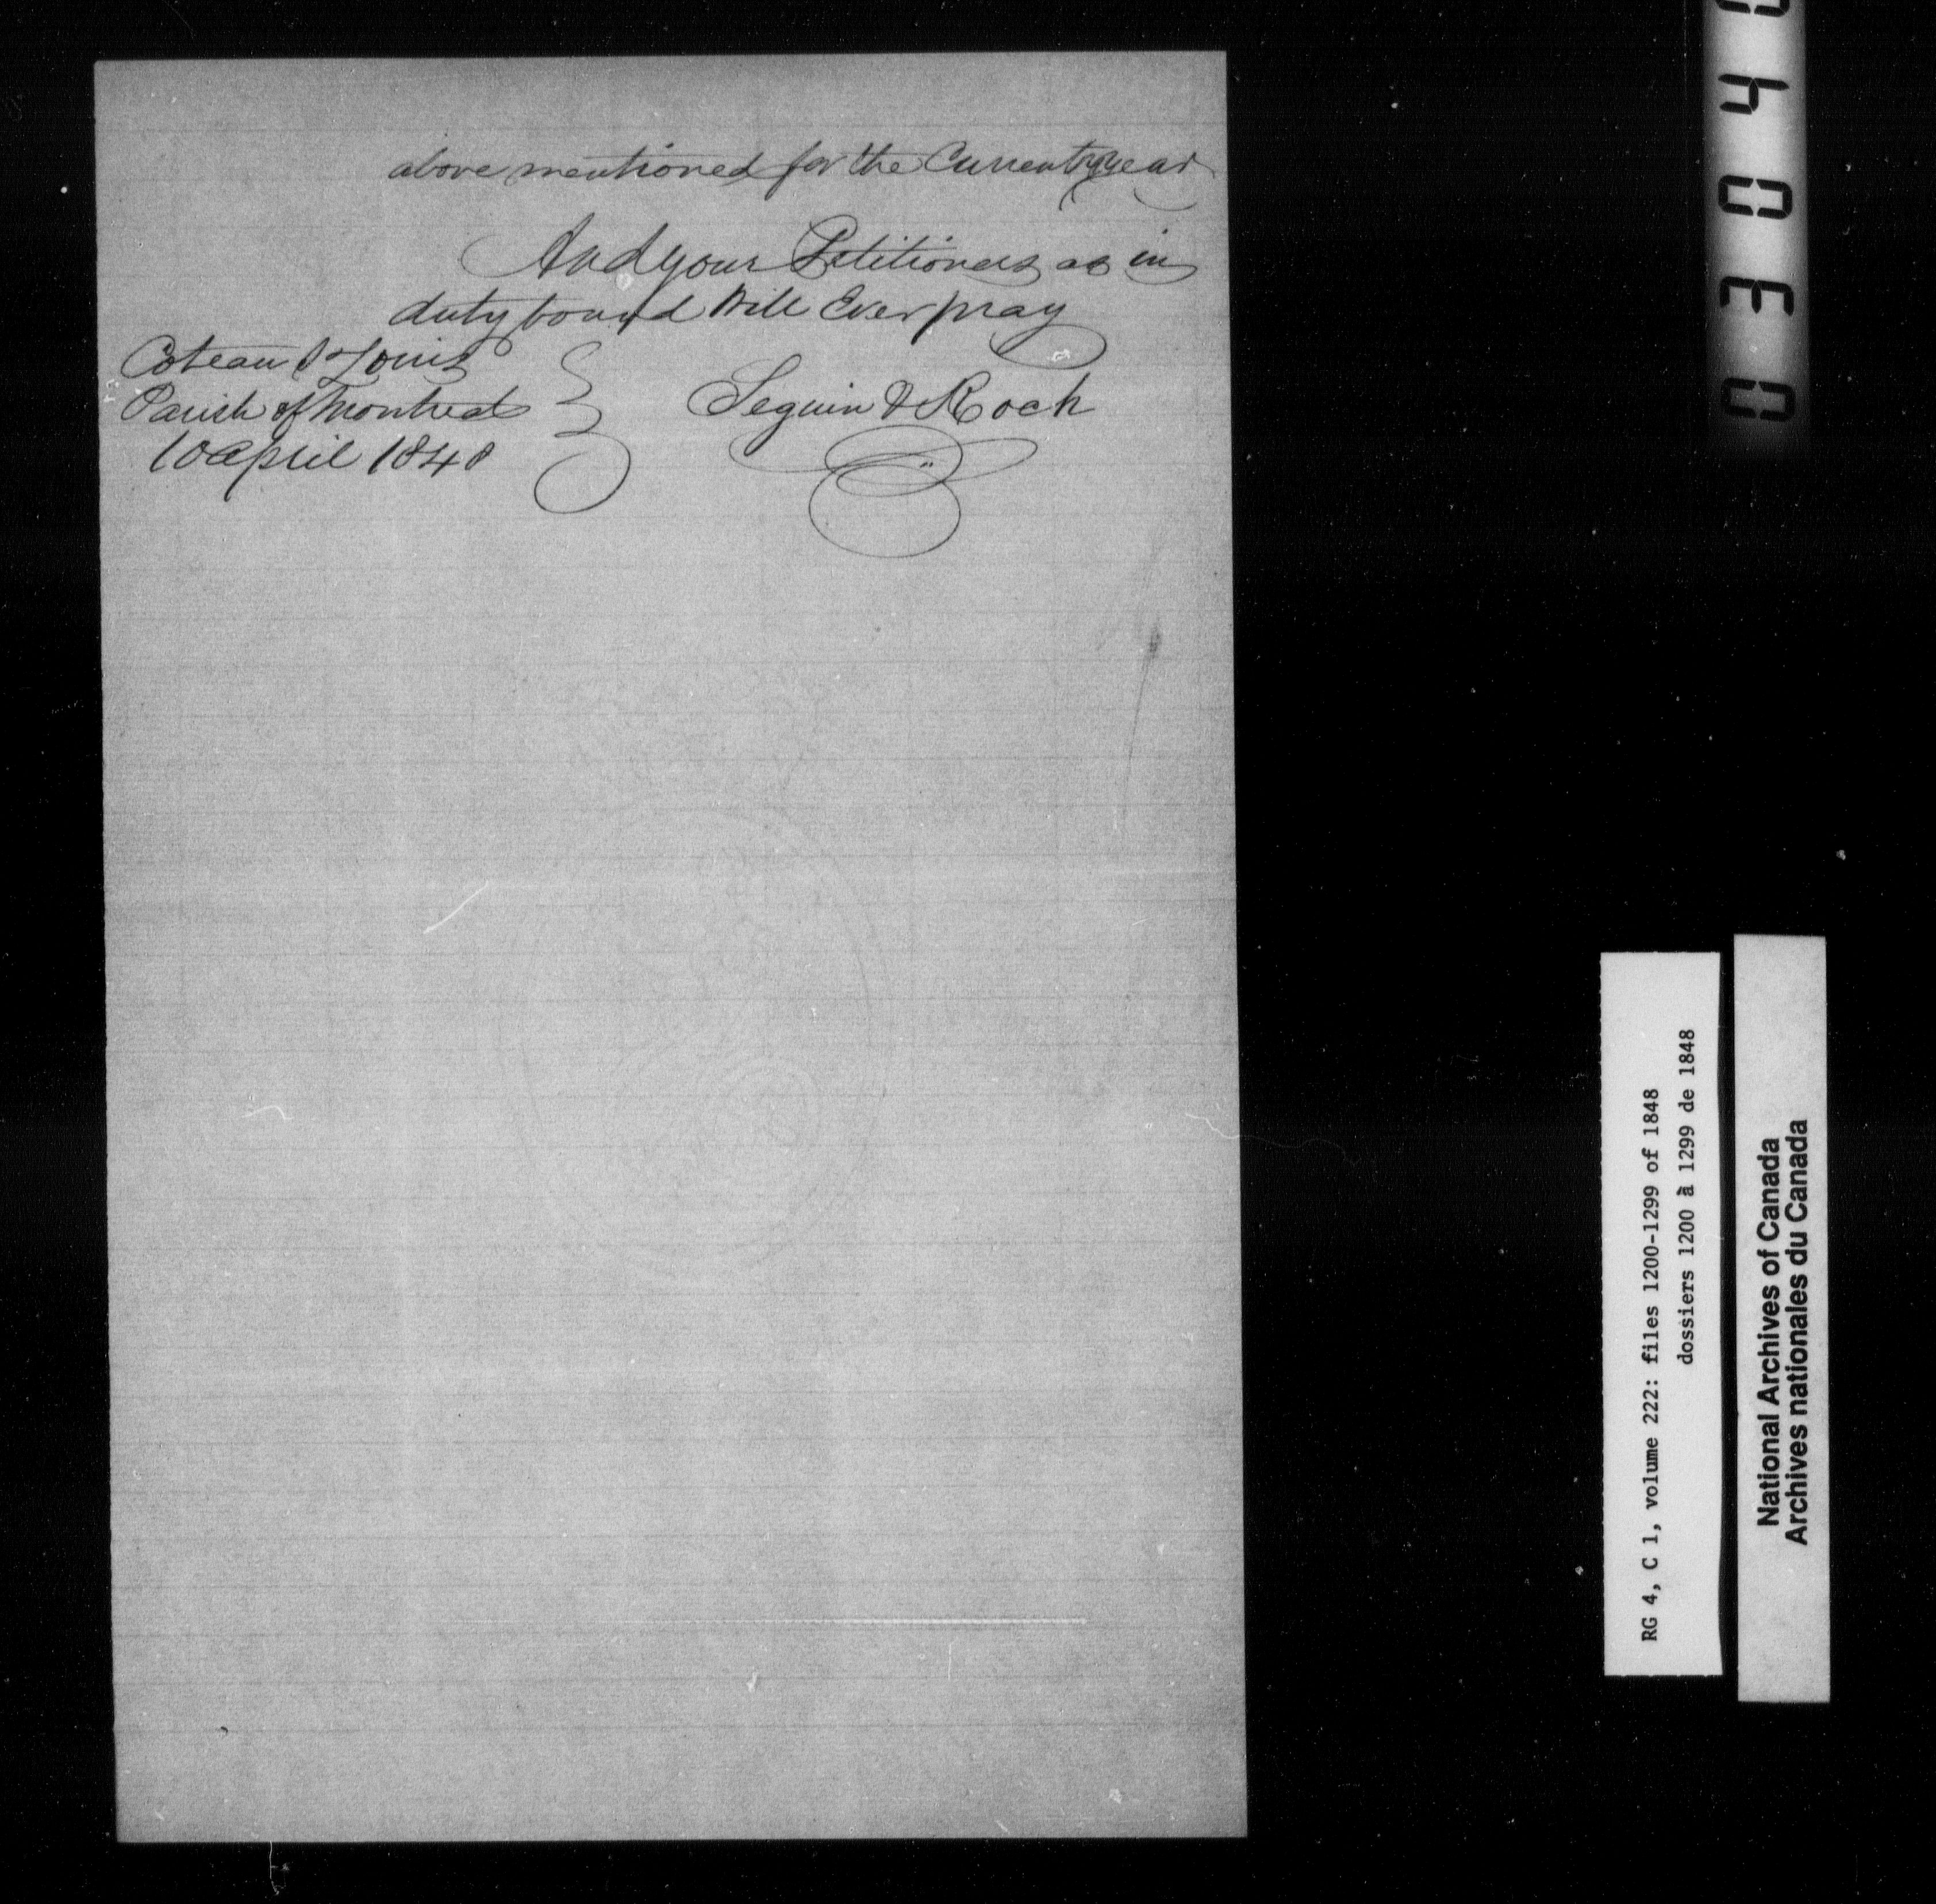 above mentioned for the Current year
And your Petitioners as in
duty bound Will Ever pray
Coteau St Louis
Parish of Montreal
10 April 1848
Seguin & Roch
RG 4, C 1, volume 222: files 1200-1299 of 1848
dossiers 1200 à 1299 de 1848
National Archives of Canada
Archives nationales du Canada